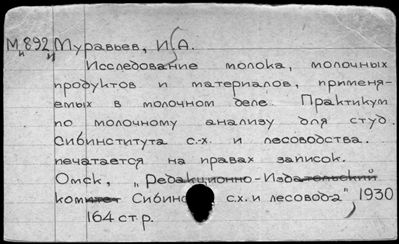 М 892 Муравьев, И. А.
Исследование молока, молочных
продуктов и материалов, применя-
емых в молочном деле. Практикум
по молочному анализу для студ.
Сибинститута с.-х. и лесоводства.
печатается на правах записок.
Омск, "Редакционно-Издательский
комитет Сибин с.х. и лесовода", 1930
164 стр.